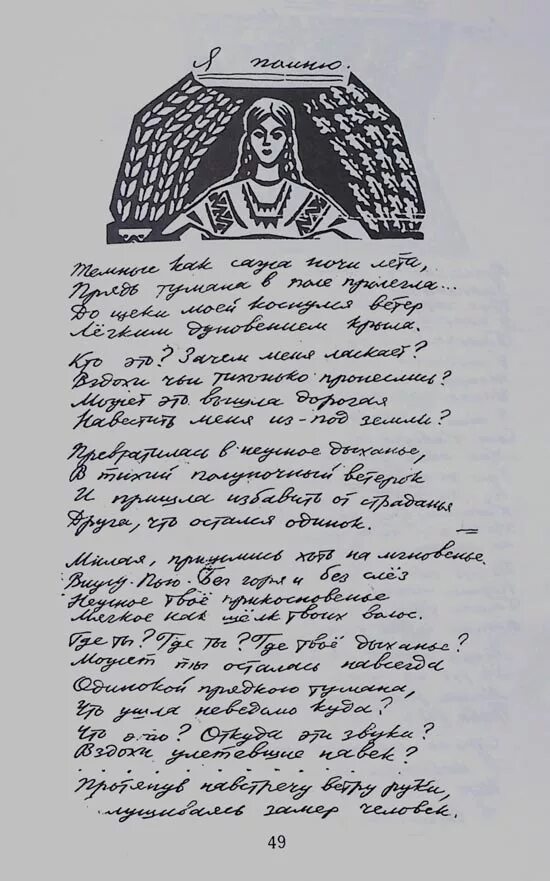 Я помню.
Темные как сажа ночи лета,
Прядь тумана в поле прилегла...
До щеки моей коснулся ветер
Лёгким дуновением крыла.
Кто это? Зачем меня ласкает?
Вздохи чьи тихонько пронеслись?
Может это вышла дорогая
Навестить меня из-под земли?
Превратилась в нежное дыханье,
В тихий полуночный ветерок
И пришла избавить от страданья
Друга, что остался одинок.
Милая, приснись хоть на мгновенье.
Без горя и без слёз
Нежное твоё прикосновенье
Мягкое как шёлк твоих волос.
Где ты? Где ты? Где твоё дыханье?
Может ты осталась навсегда
Одинокой прядкою тумана,
Что ушла неведомо куда?
Что это? Откуда эти звуки?
Вздохи улетевшие навек?
Протянув навстречу ветру руки,
лушиваясь замер человек.
49